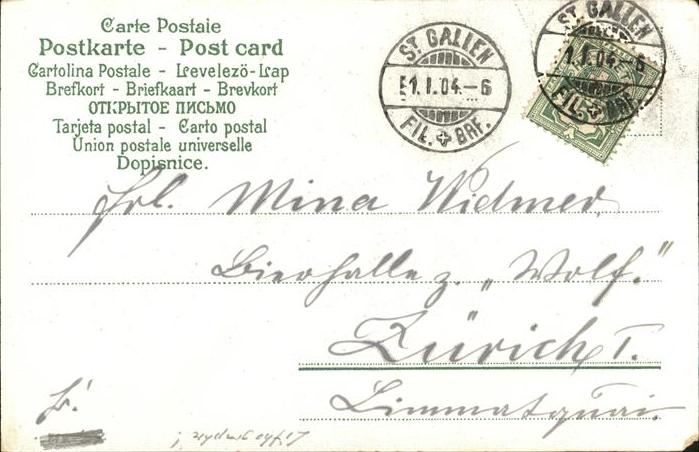 Carte Postale
Postkarte - Post card
Cartolina Postale - Levelezö-Lap
Brefkort - Briefkaart - Brevkort
ОТКРЫТОЕ ПИСЬМО
Tarjeta postal - Carto postal
Union postale universelle
Dopisnice.
ST. GALLEN
1.I.04.-6
FIL. BRF.
ST. GALLEN
1.I.04.-6
FIL. BRF.
Frl. Mina Widmer,
Bierhalle z. „Wolf."
Zürich I.
Limmatquai.